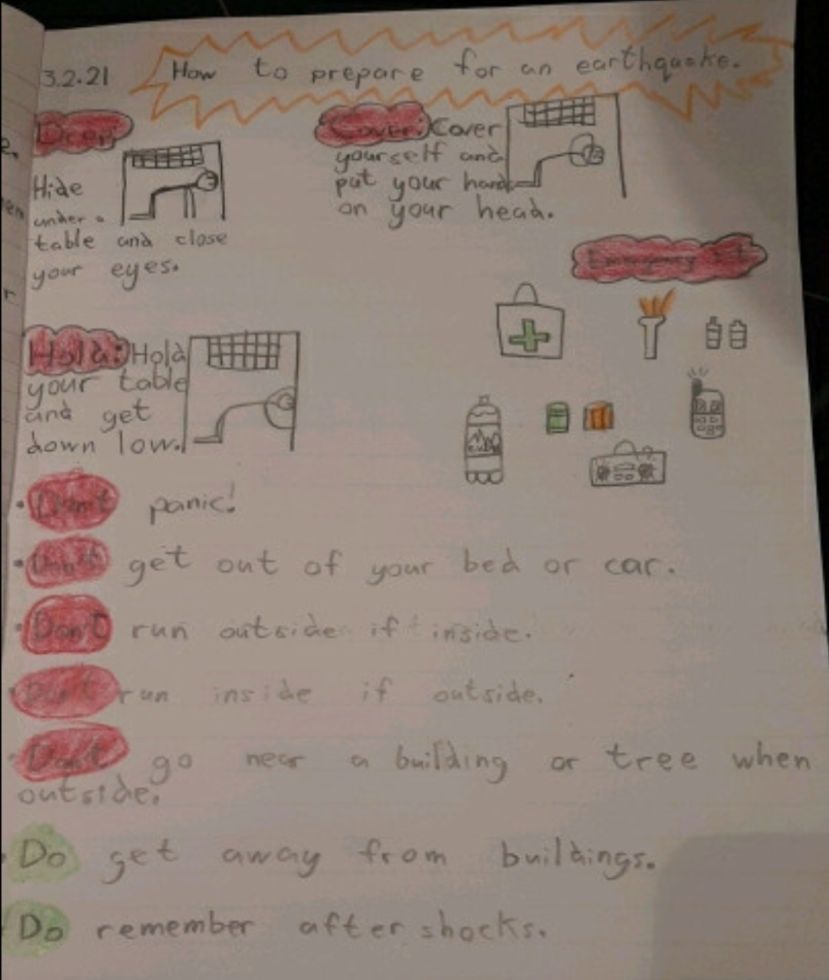 3.2.21
How to prepare for an earthquake.
Drop
Hide
under a
table and close
your eyes.
Cover: Cover
yourself and
put your hand
on your head.
Emergency Kit
Hold: Hold
your table
and get
down low.
• Don't panic!
• Don't get out of your bed or car.
• Don't run outside if inside.
• Don't run inside if outside.
• Don't go near a building or tree when
outside.
• Do get away from buildings.
• Do remember after shocks.